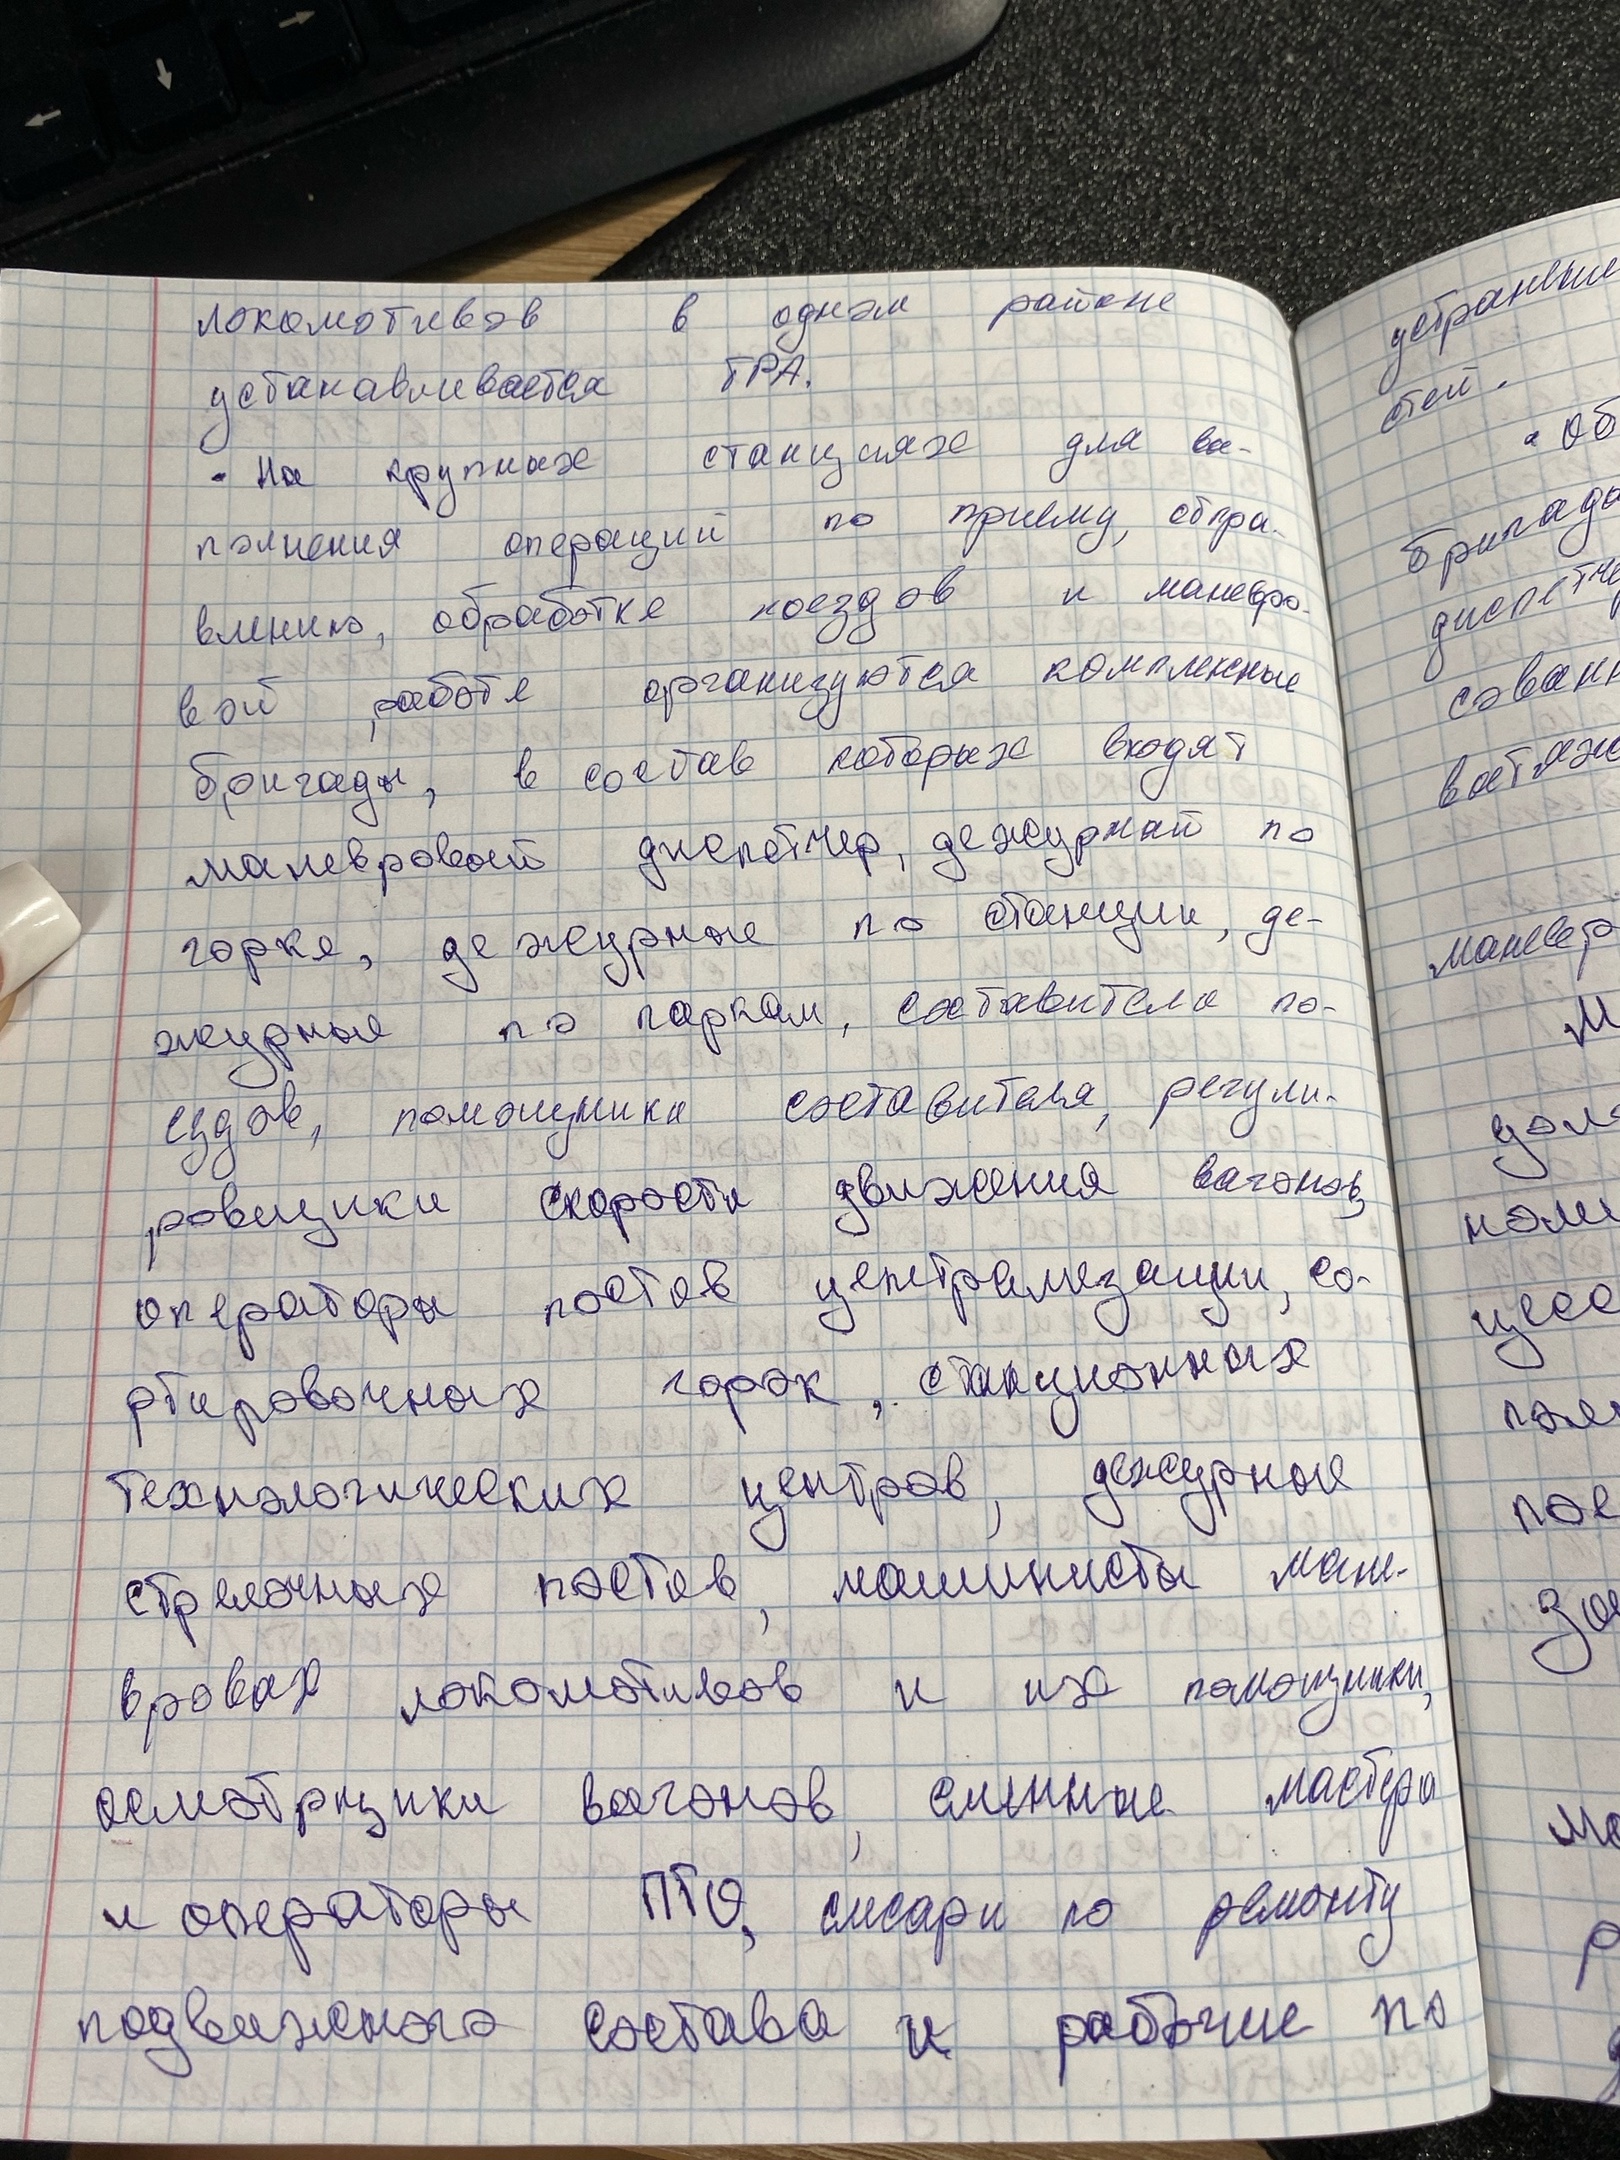 локомотивов в одном районе
устанавливается ТРА.
• На крупных станциях для вы-
полнения операций по приему, отпра-
влению, обработке поездов и маневро-
вой работе организуются комплексные
бригады, в состав которых входят
маневровый диспетчер, дежурный по
горке, дежурные по станции, де-
журные по паркам, составители по-
ездов, помощники составителя, регули-
ровщики скорости движения вагонов,
операторы постов централизации, со-
ртировочных горок, станционных
технологических центров, дежурные
стрелочных постов, машинисты мане-
вровых локомотивов и их помощники,
осмотрщики вагонов, сменные мастера
и операторы ПТО, слесари по ремонту
подвижного состава и рабочие по
устраны
стей.
• Об
бригада
диспетче
сован
вытяж
маневр
М
ном
цесс
пос